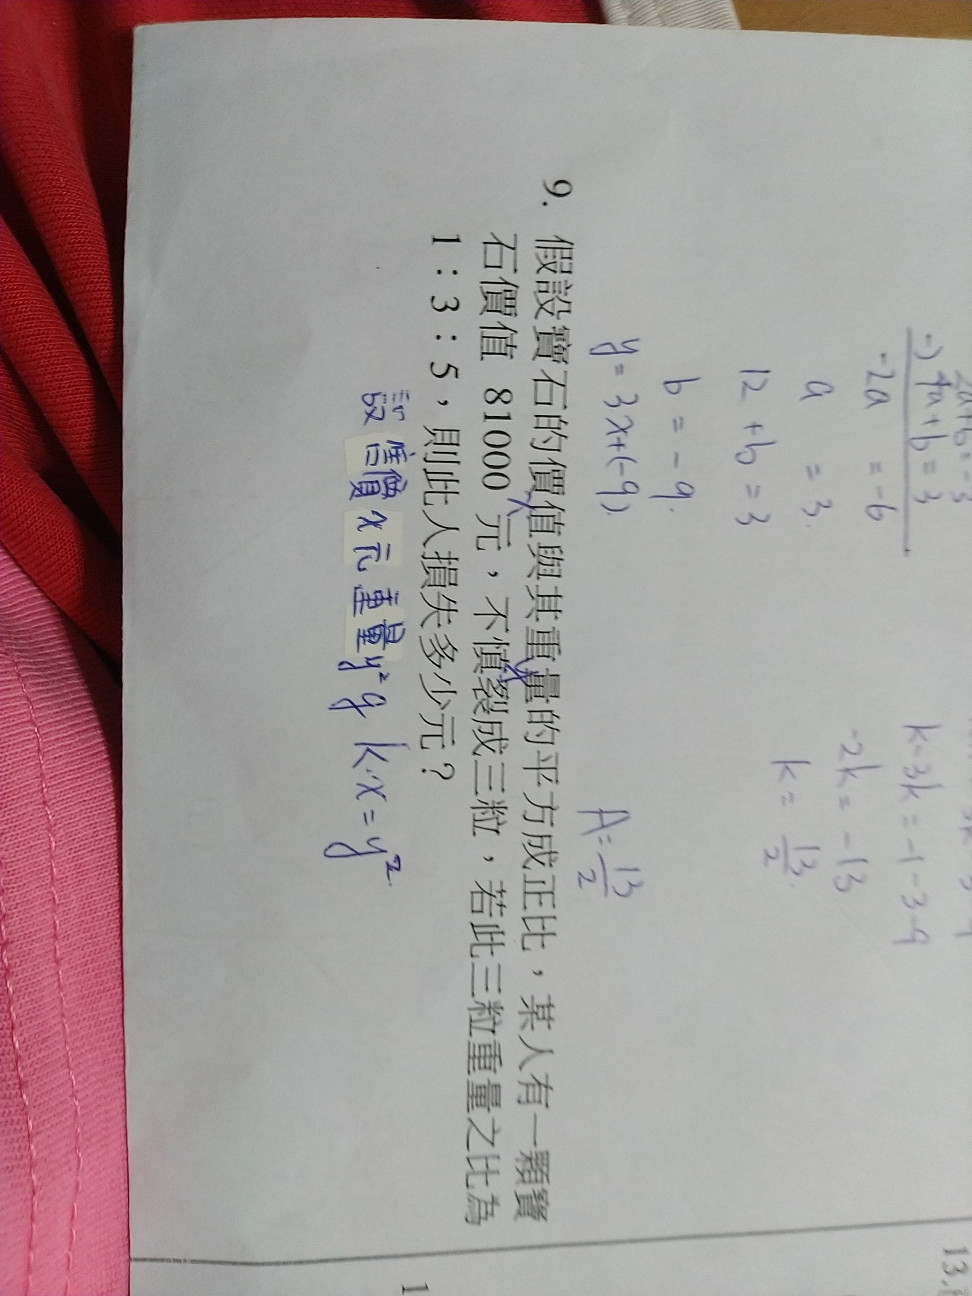 2a+b=-3
-) 4a+b=3
-2a = -6
a = 3.
12+b=3
b = -9.
y=3x+(-9).
k-3k=-1-3-9
-2k=-13
k=13/2.
A=13/2
9. 假設寶石的價值與其重量的平方成正比，某人有一顆寶
x y
石價值 81000 元，不慎裂成三粒，若此三粒重量之比為
1：3：5，則此人損失多少元？
設售價x元重量y²g k·x=y²
13.
1